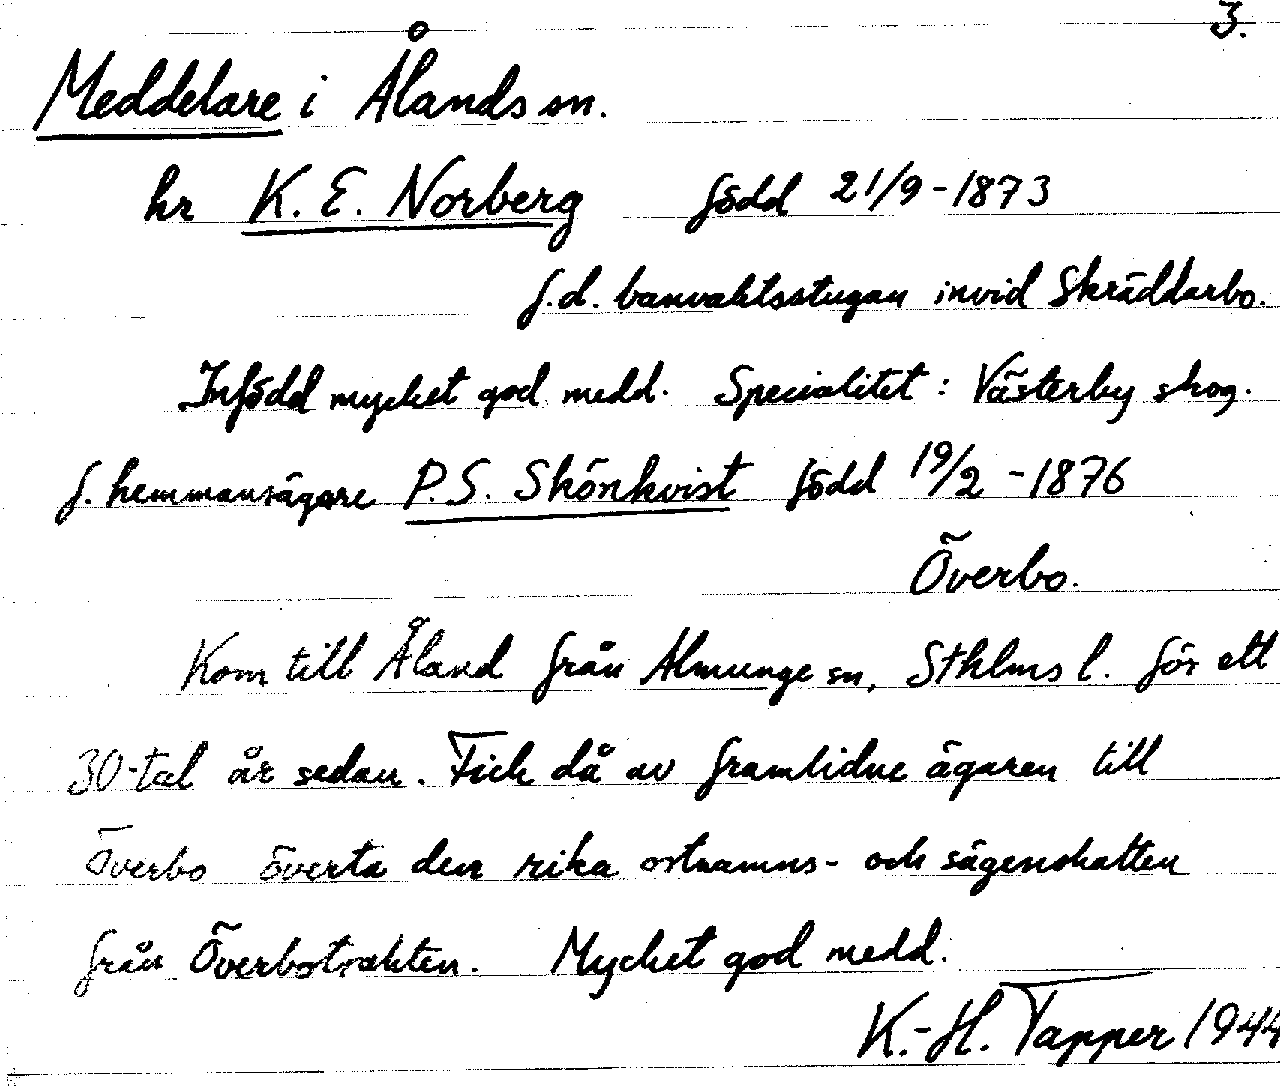 3.
Meddelare i Ålands sn.
hr K. E. Norberg född 21/9-1873
f.d. banvaktsstugan invid Skräddarbo.
Infödd mycket god medd. Specialitet: Västerby skog.
f. hemmansägare P.S. Skönkvist född 19/2 -1876
Överbo.
Kom till Åland från Almunge sn, Sthlms l. för ett
30-tal år sedan. Fick då av framlidne ägaren till
Överbo överta den rika ortnamns- och sägenskatten
från Överbotrakten. Mycket god medd.
K.-H. Tapper 1944